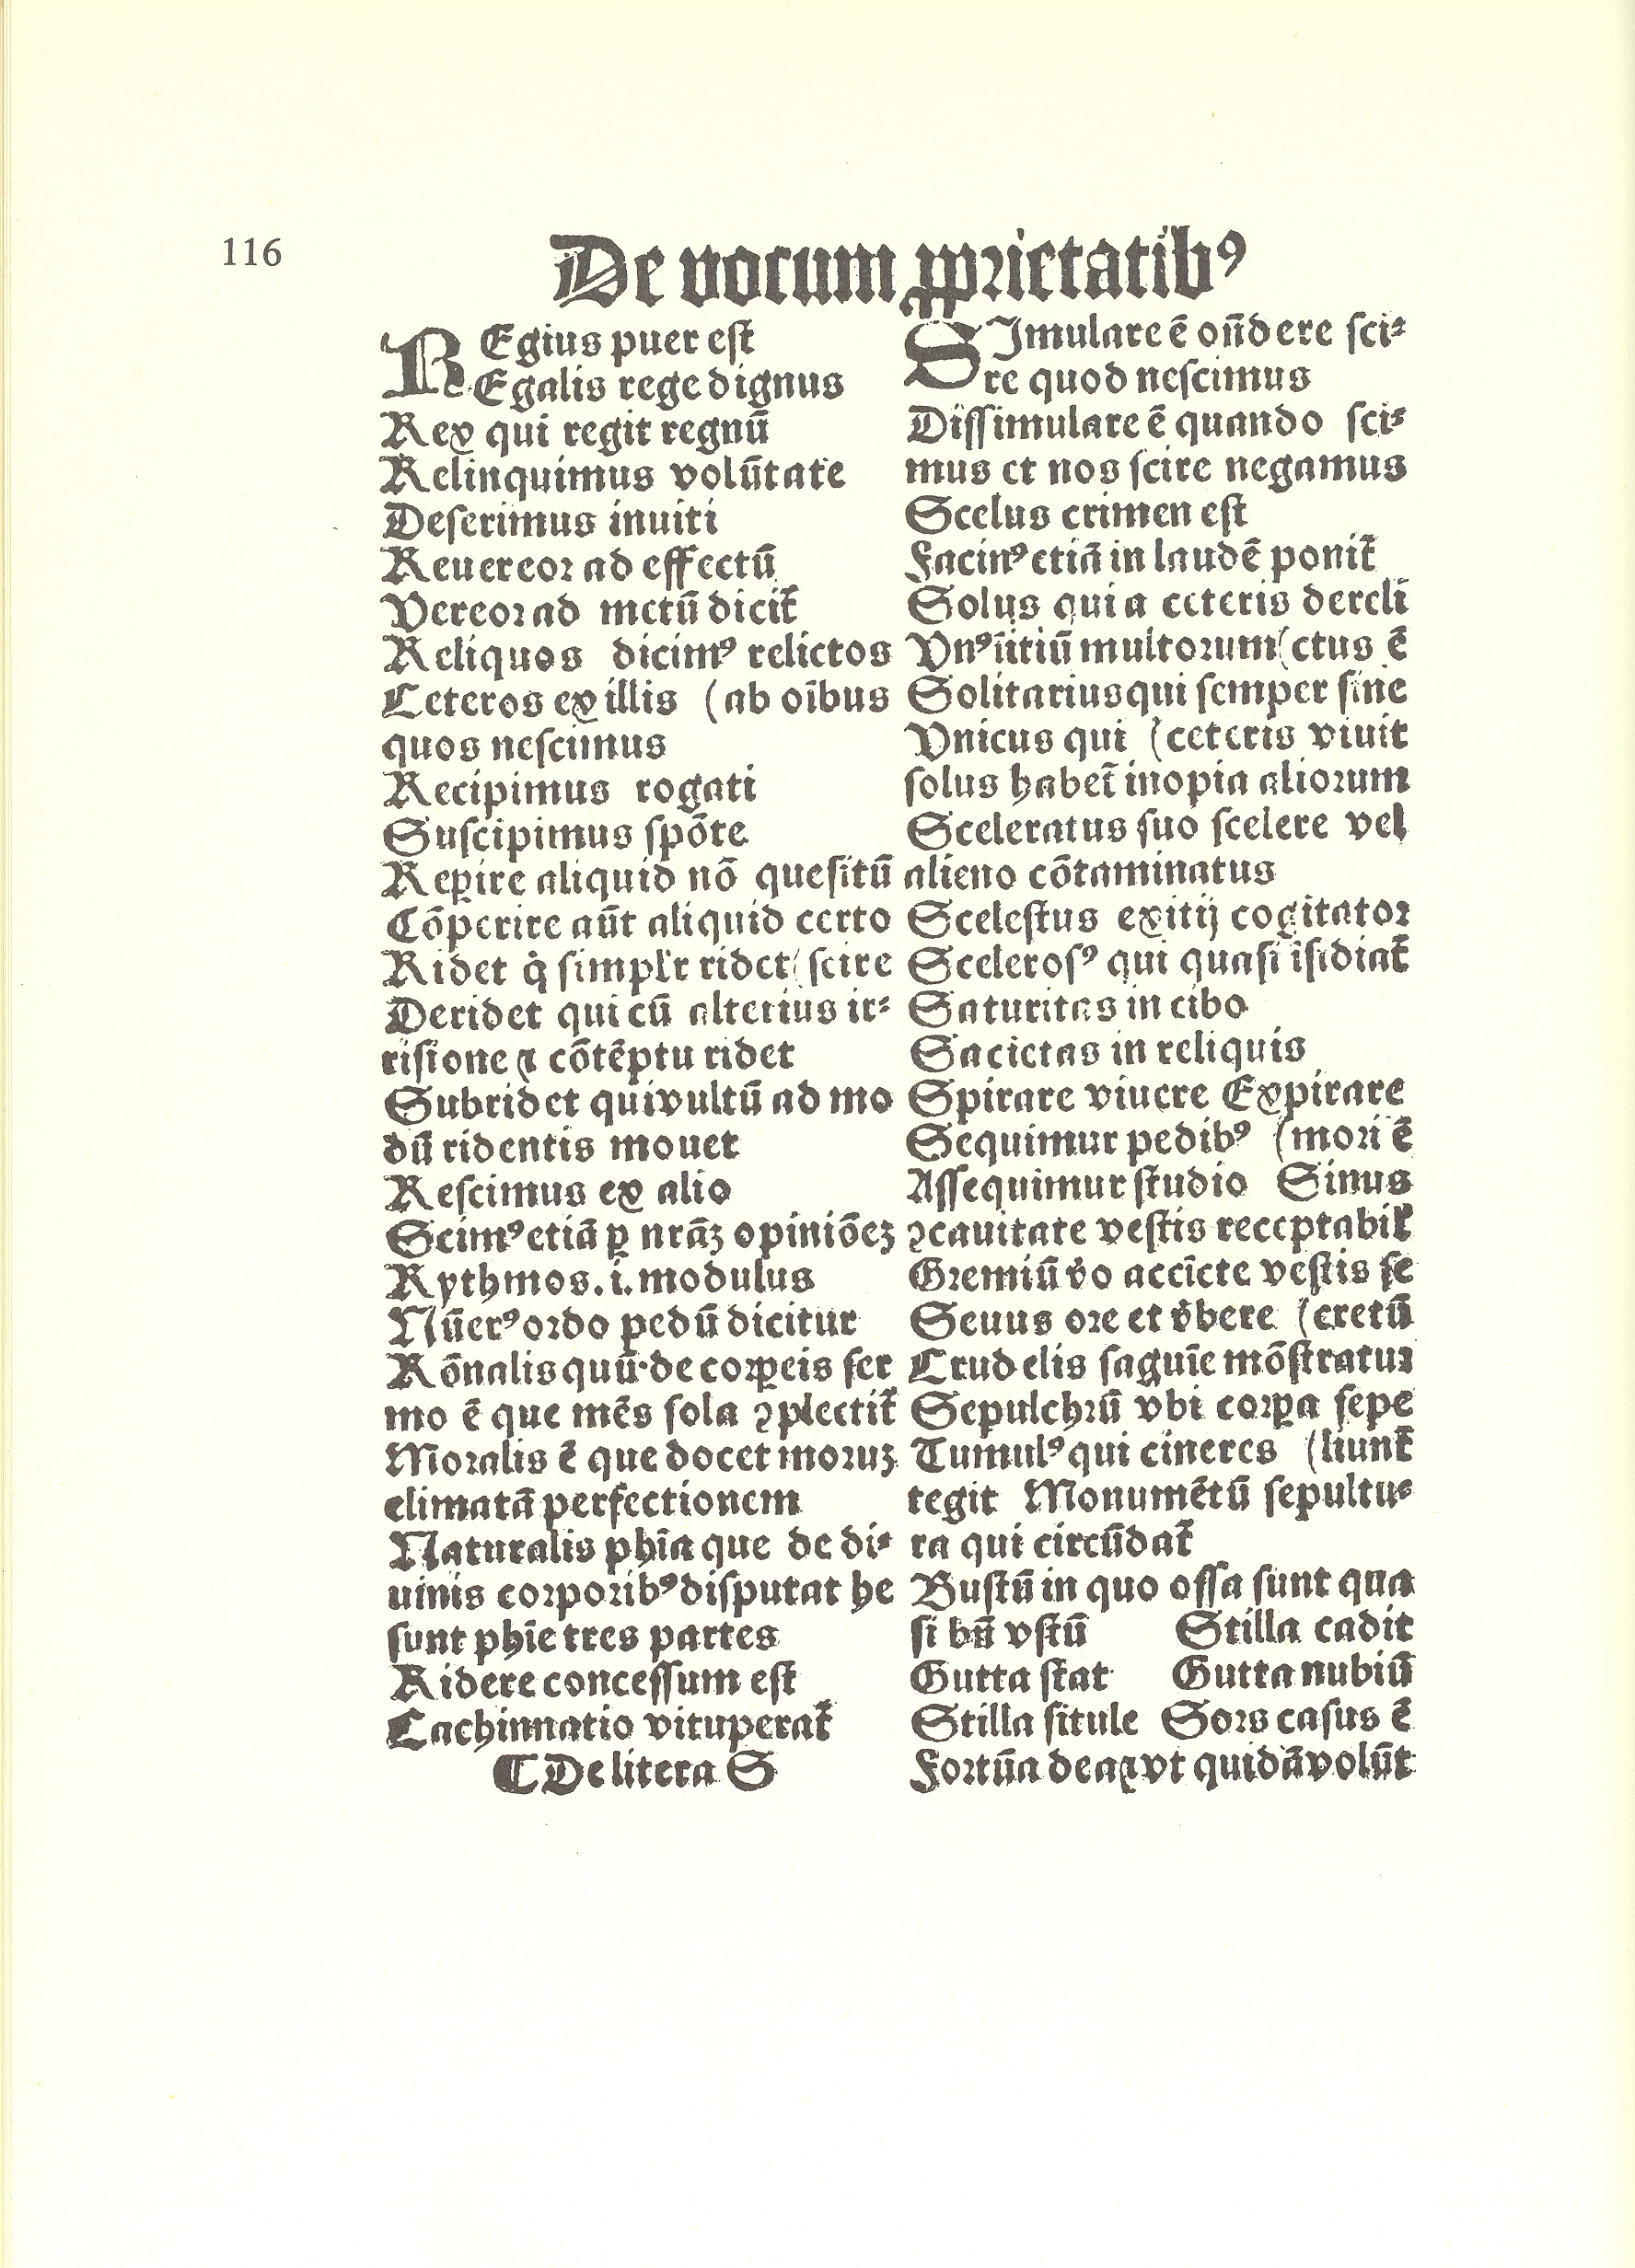 116
De vocum ꝓprietatibꝰ
REgius puer est
Egalis rege dignus
Rex qui regit regnū
Relinquimus volūtate
Deserimus inuiti
Reuereor ad effectū
Vereor ad metū dicit̄
Reliquos dicimꝰ relictos
Ceteros ex illis (ab oībus
quos nescimus
Recipimus rogati
Suscipimus spōte
Reꝑire aliquid nō quesitū
Cōperire aūt aliquid certo
Ridet q̇ simplr̄ ridet (scire
Deridet qui cū alterius ir⸗
risione ⁊ cōtēptu ridet
Subridet qui vultū ad mo
dū ridentis mouet
Rescimus ex alio
Scimꝰ etiā ꝑ nrāꝫ opiniōeꝫ
Rythmos .i. modulus
Nūerꝰ ordo pedū dicitur
Rōnalis quū de corꝑeis ser
mo ē que mēs sola ꝯplectit̄
Moralis ē que docet moruꝫ
elimatā perfectionem
Naturalis phīa que de di⸗
uinis corporibꝰ disputat he
sunt phīe tres partes
Ridere concessum est
Cachinnatio vituperat̄
¶ De litera S
SImulare ē on̄dere sci⸗
re quod nescimus
Dissimulare ē quando sci⸗
mus et nos scire negamus
Scelus crimen est
Facinꝰ etiā in laudē ponit̄
Solus qui a ceteris dereli
Vnꝰ īitiū multorum (ctus ē
Solitarius qui semper sine
Vnicus qui (ceteris viuit
solus habet̄ inopia aliorum
Sceleratus suo scelere vel
alieno cōtaminatus
Scelestus exitij cogitator
Scelerosꝰ qui quasi īsidiat̄
Saturitas in cibo
Sacietas in reliquis
Spirare viuere Expirare
Sequimur pedibꝰ (mori ē
Assequimur studio Sinus
ꝯcauitate vestis receptabil̄
Gremiū v̄o accīcte vestis se
Seuus ore et v̄bere (cretū
Crudelis saguīe mōstratur
Sepulchrū vbi corꝑa sepe
Tumulꝰ qui cineres (liunt̄
tegit Monumētū sepultu⸗
ra qui circūdat̄
Bustū in quo ossa sunt qua
si bn̄ vstū Stilla cadit
Gutta stat Gutta nubiū
Stilla situle Sors casus ē
Fortūa dea ⁊ vt quidā volūt